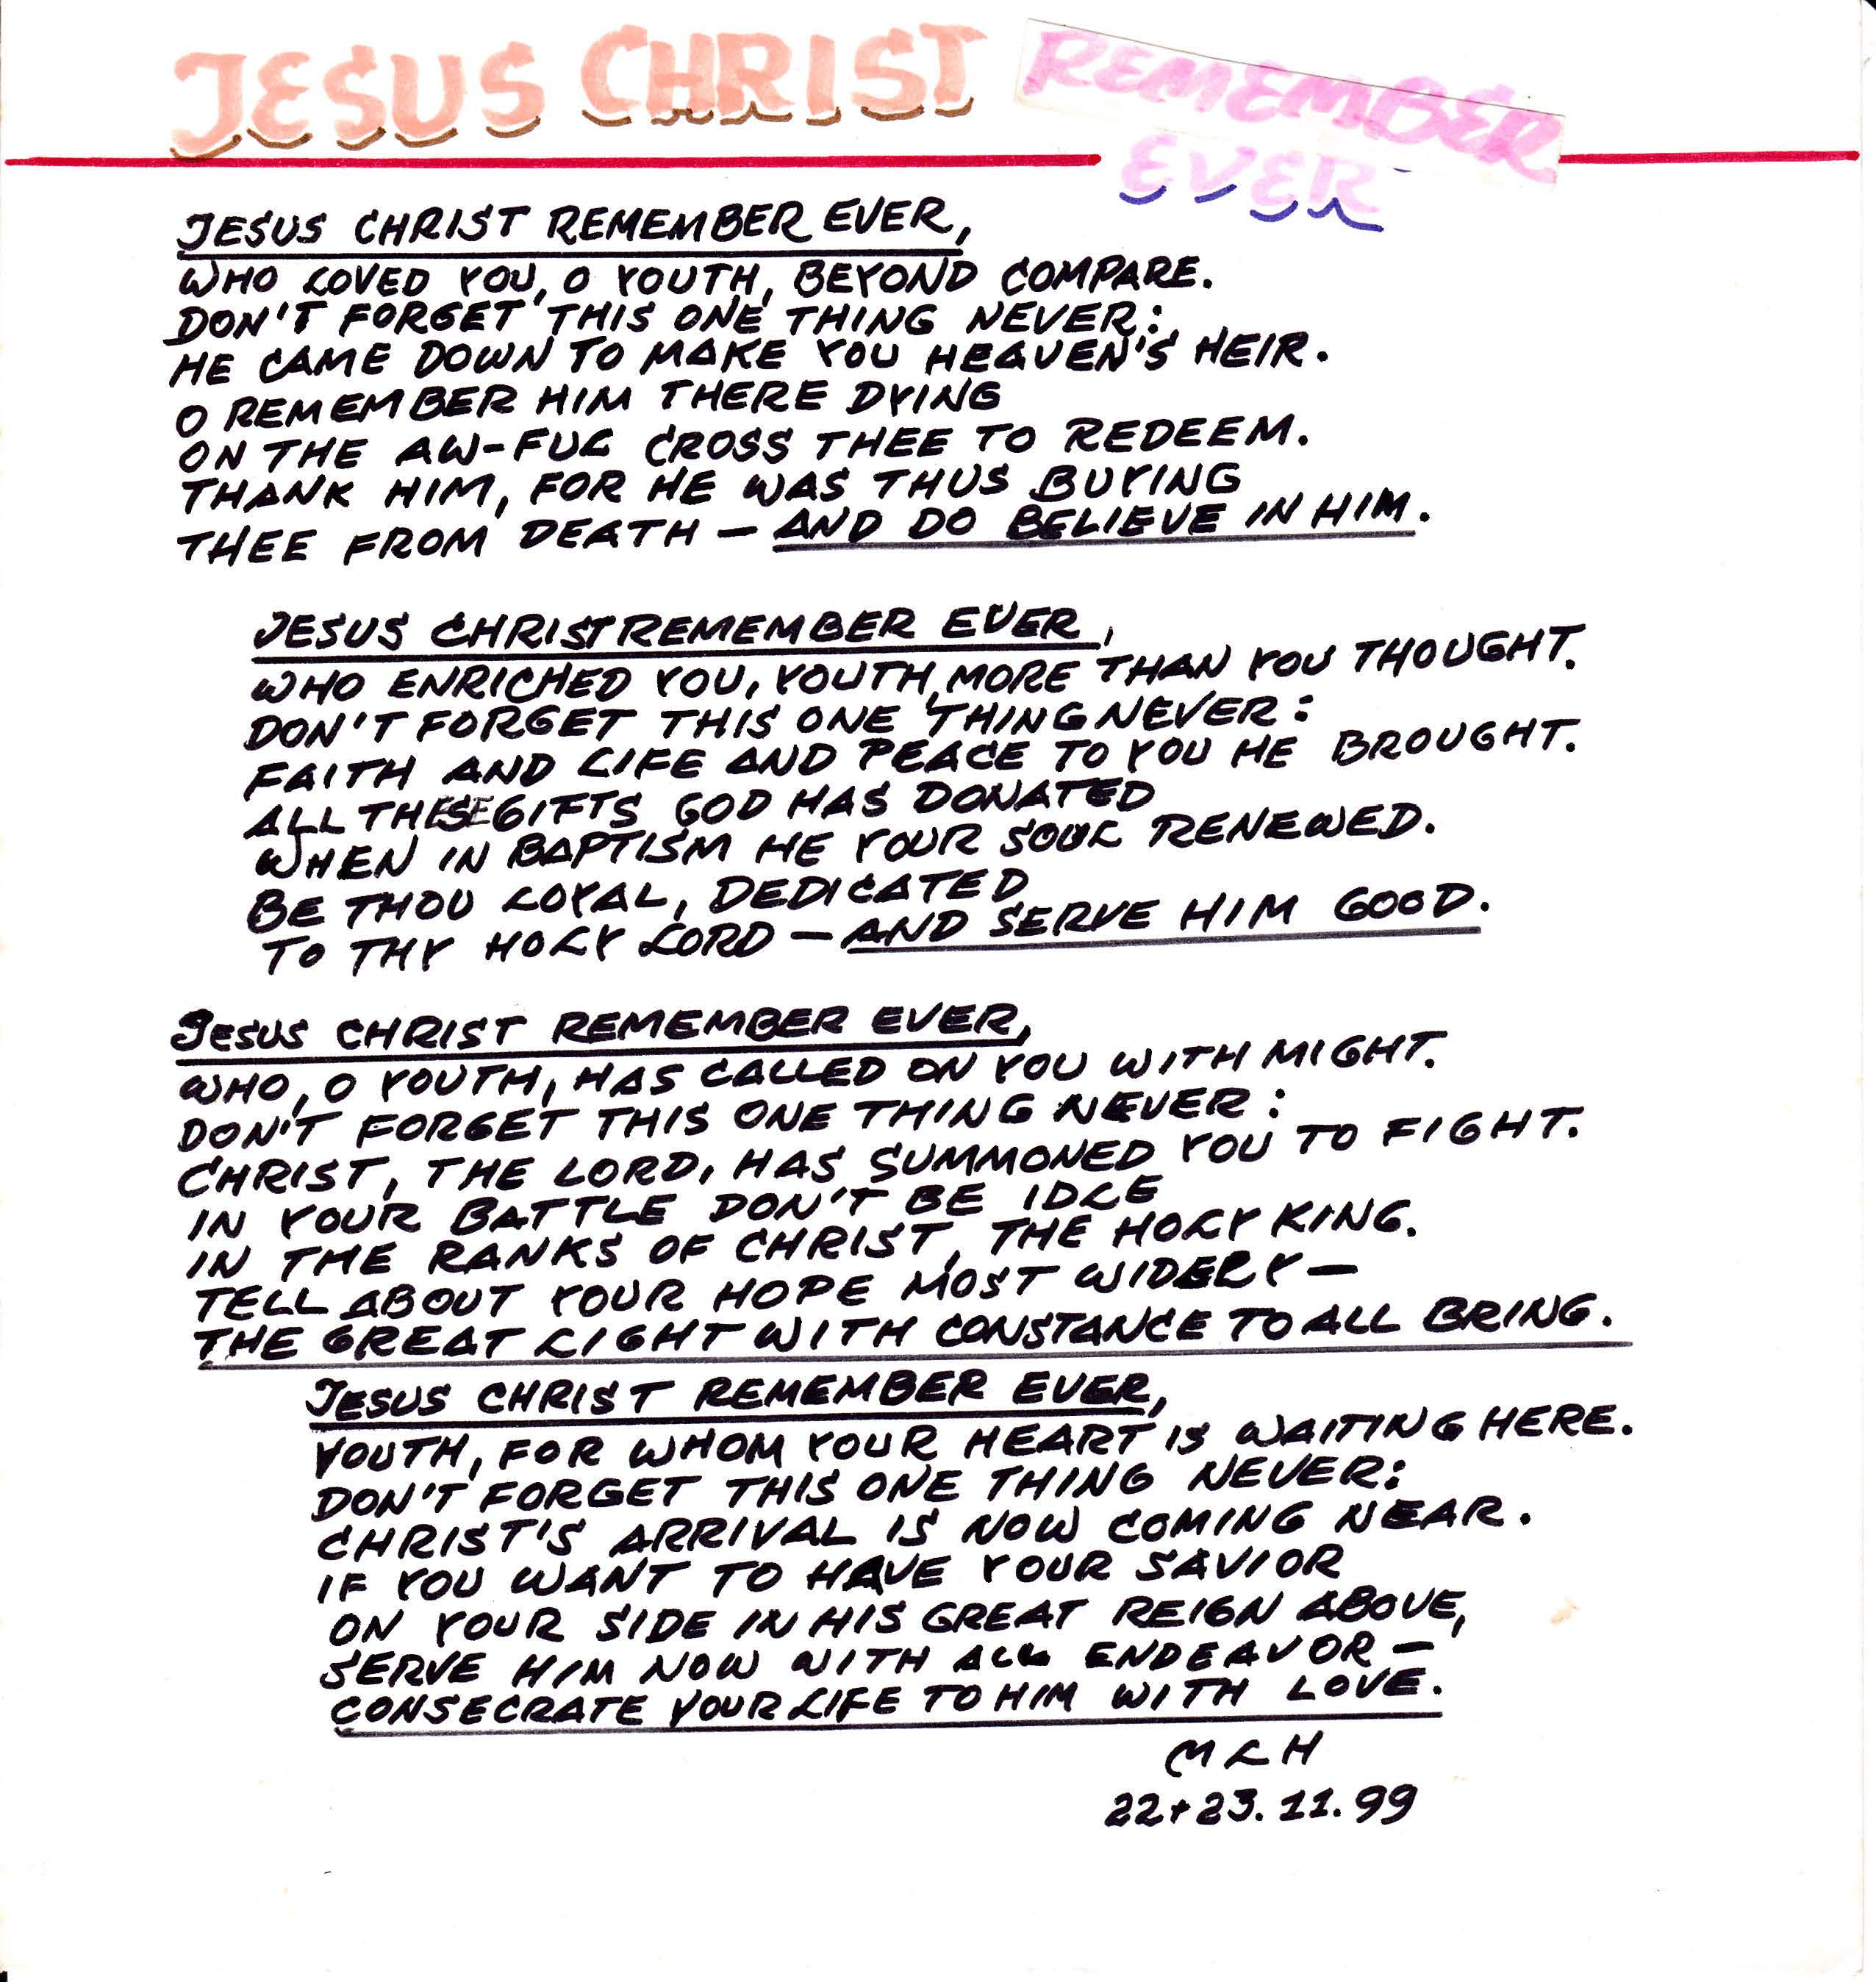 JESUS CHRIST REMEMBER
EVER
JESUS CHRIST REMEMBER EVER,
WHO LOVED YOU, O YOUTH, BEYOND COMPARE.
DON'T FORGET THIS ONE THING NEVER:
HE CAME DOWN TO MAKE YOU HEAVEN'S HEIR.
O REMEMBER HIM THERE DYING
ON THE AW-FUL CROSS THEE TO REDEEM.
THANK HIM, FOR HE WAS THUS BUYING
THEE FROM DEATH – AND DO BELIEVE IN HIM.
JESUS CHRIST REMEMBER EVER,
WHO ENRICHED YOU, YOUTH, MORE THAN YOU THOUGHT.
DON'T FORGET THIS ONE THING NEVER:
FAITH AND LIFE AND PEACE TO YOU HE BROUGHT.
ALL THESE GIFTS GOD HAS DONATED
WHEN IN BAPTISM HE YOUR SOUL RENEWED.
BE THOU LOYAL, DEDICATED
TO THY HOLY LORD – AND SERVE HIM GOOD.
JESUS CHRIST REMEMBER EVER,
WHO, O YOUTH, HAS CALLED ON YOU WITH MIGHT.
DON'T FORGET THIS ONE THING NEVER:
CHRIST, THE LORD, HAS SUMMONED YOU TO FIGHT.
IN YOUR BATTLE DON'T BE IDLE
IN THE RANKS OF CHRIST, THE HOLY KING.
TELL ABOUT YOUR HOPE MOST WIDELY –
THE GREAT LIGHT WITH CONSTANCE TO ALL BRING.
JESUS CHRIST REMEMBER EVER,
YOUTH, FOR WHOM YOUR HEART IS WAITING HERE.
DON'T FORGET THIS ONE THING NEVER:
CHRIST'S ARRIVAL IS NOW COMING NEAR.
IF YOU WANT TO HAVE YOUR SAVIOR
ON YOUR SIDE IN HIS GREAT REIGN ABOVE,
SERVE HIM NOW WITH ALL ENDEAVOR –
CONSECRATE YOUR LIFE TO HIM WITH LOVE.
MLH
22+23.11.99